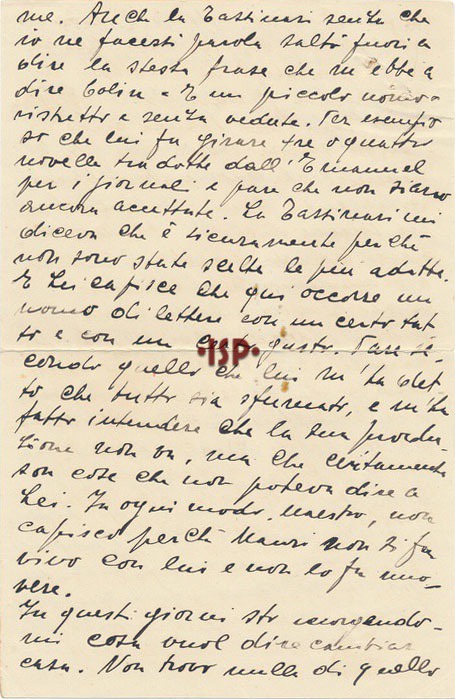 me. Anch la Tassinari senza che
io ne facesti parola saltò fuori a
dire la stessa frase che m'ebbe a
dire Colin "E un piccolo uomo"
ristretto e senza vedute. Per esempio
so che lui fa girare tre o quattro
novelle tradotte dall'Emanuel
per i giornali e pare che non siano
ancora accettate. La Tassinari mi
diceva che è sicuramente perchè
non sono state scelte le più adatte.
E Lei capisce che qui occorre un
uomo di lettere con un certo tat
to e con un gusto. Pare se-
condo quello che lui m'ha det
to che tutto sia sfumato, e m'ha
fatto intendere che la sua produ-
zione non va, ma che
son cose che non poteva dire a
Lei. In ogni modo, Maestro, non
capisco perchè Mauri non si fa
vivo con lui e non lo fa muo-
vere.
In questi giorni sto
mi cosa vuol dire cambiar
casa. Non trovo nulla di quello
ISP